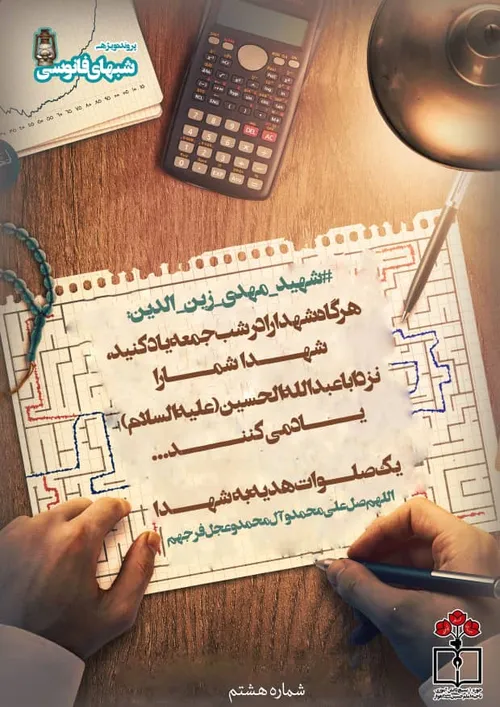 پرونده‌ویژه
شبهای فانوسی
#شهید_مهدی_زین_الدین:
هرگاه شهدا را در شب جمعه یاد کنید،
شهدا شما را
نزد اباعبدالله الحسین (علیه السلام)
یاد می کنند...
یک صلوات هدیه به شهدا
اللهم صل علی محمد و آل محمد و عجل فرجهم
شماره هشتم